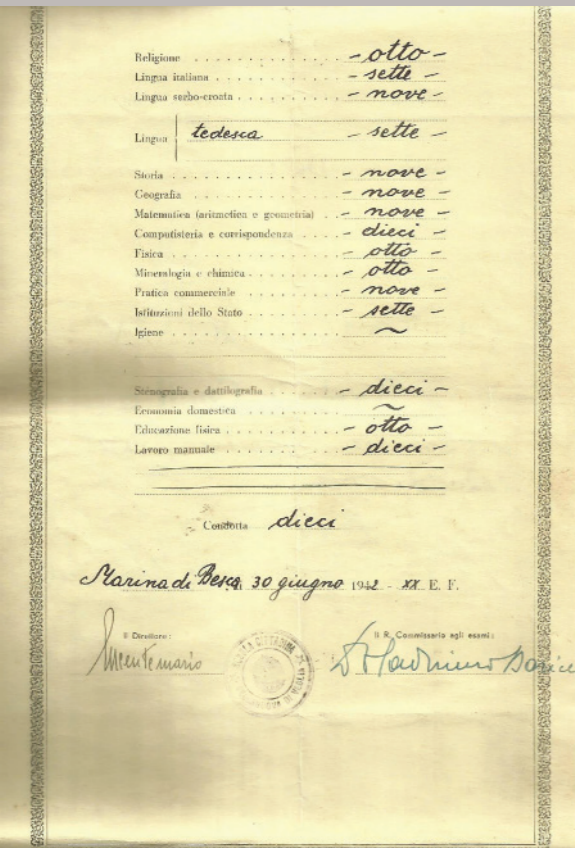 Religione . . . . . . . . . . . . . - otto -
Lingua italiana . . . . . . . . . . . - sette -
Lingua serbo-croata . . . . . . . . . - nove -
Lingua tedesca - sette -
Storia . . . . . . . . . . . . . . - nove -
Geografia . . . . . . . . . . . . . - nove -
Matematica (aritmetica e geometria) . . - nove -
Computisteria e corrispondenza . . . . - dieci -
Fisica . . . . . . . . . . . . . . - otto -
Mineralogia e chimica . . . . . . . . - otto -
Pratica commerciale . . . . . . . . . - nove -
Istituzioni dello Stato . . . . . . . . - sette -
Igiene . . . . . . . . . . . . . . ~
Stenografia e dattilografia . . . . . . - dieci -
Economia domestica . . . . . . . . . ~
Educazione fisica . . . . . . . . . . - otto -
Lavoro manuale . . . . . . . . . . - dieci -
Condotta dieci
Marina di Besca, 30 giugno 1942 - XX E. F.
Il Direttore: Il R. Commissario agli esami: